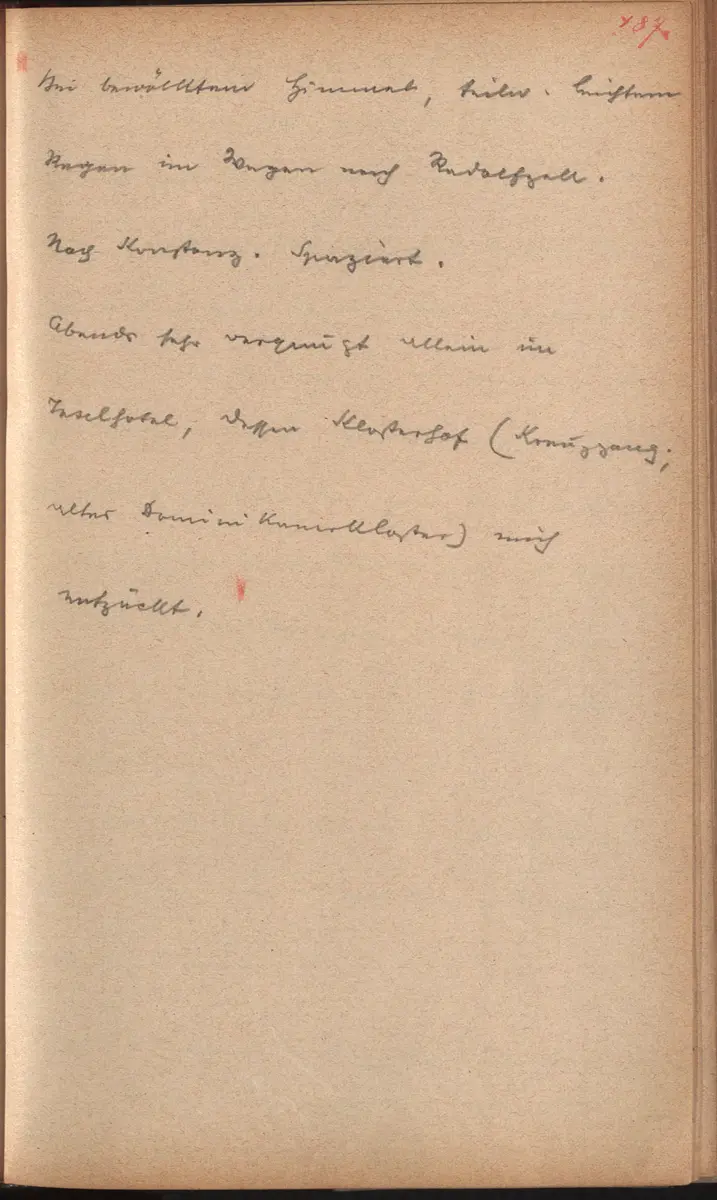 487.
Bei bewölktem Himmel, teilw. leichtem
Regen im Wagen nach Radolfzell.
Nach Konstanz. Spaziert.
Abends sehr vergnügt allein im
Inselhotel, dessen Klosterhof (Kreuzgang;
altes Dominikanerkloster) mich
entzückt.